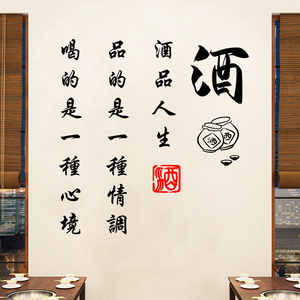 酒
酒
酒
酒品人生
酒
品的是一種情調
喝的是一種心境